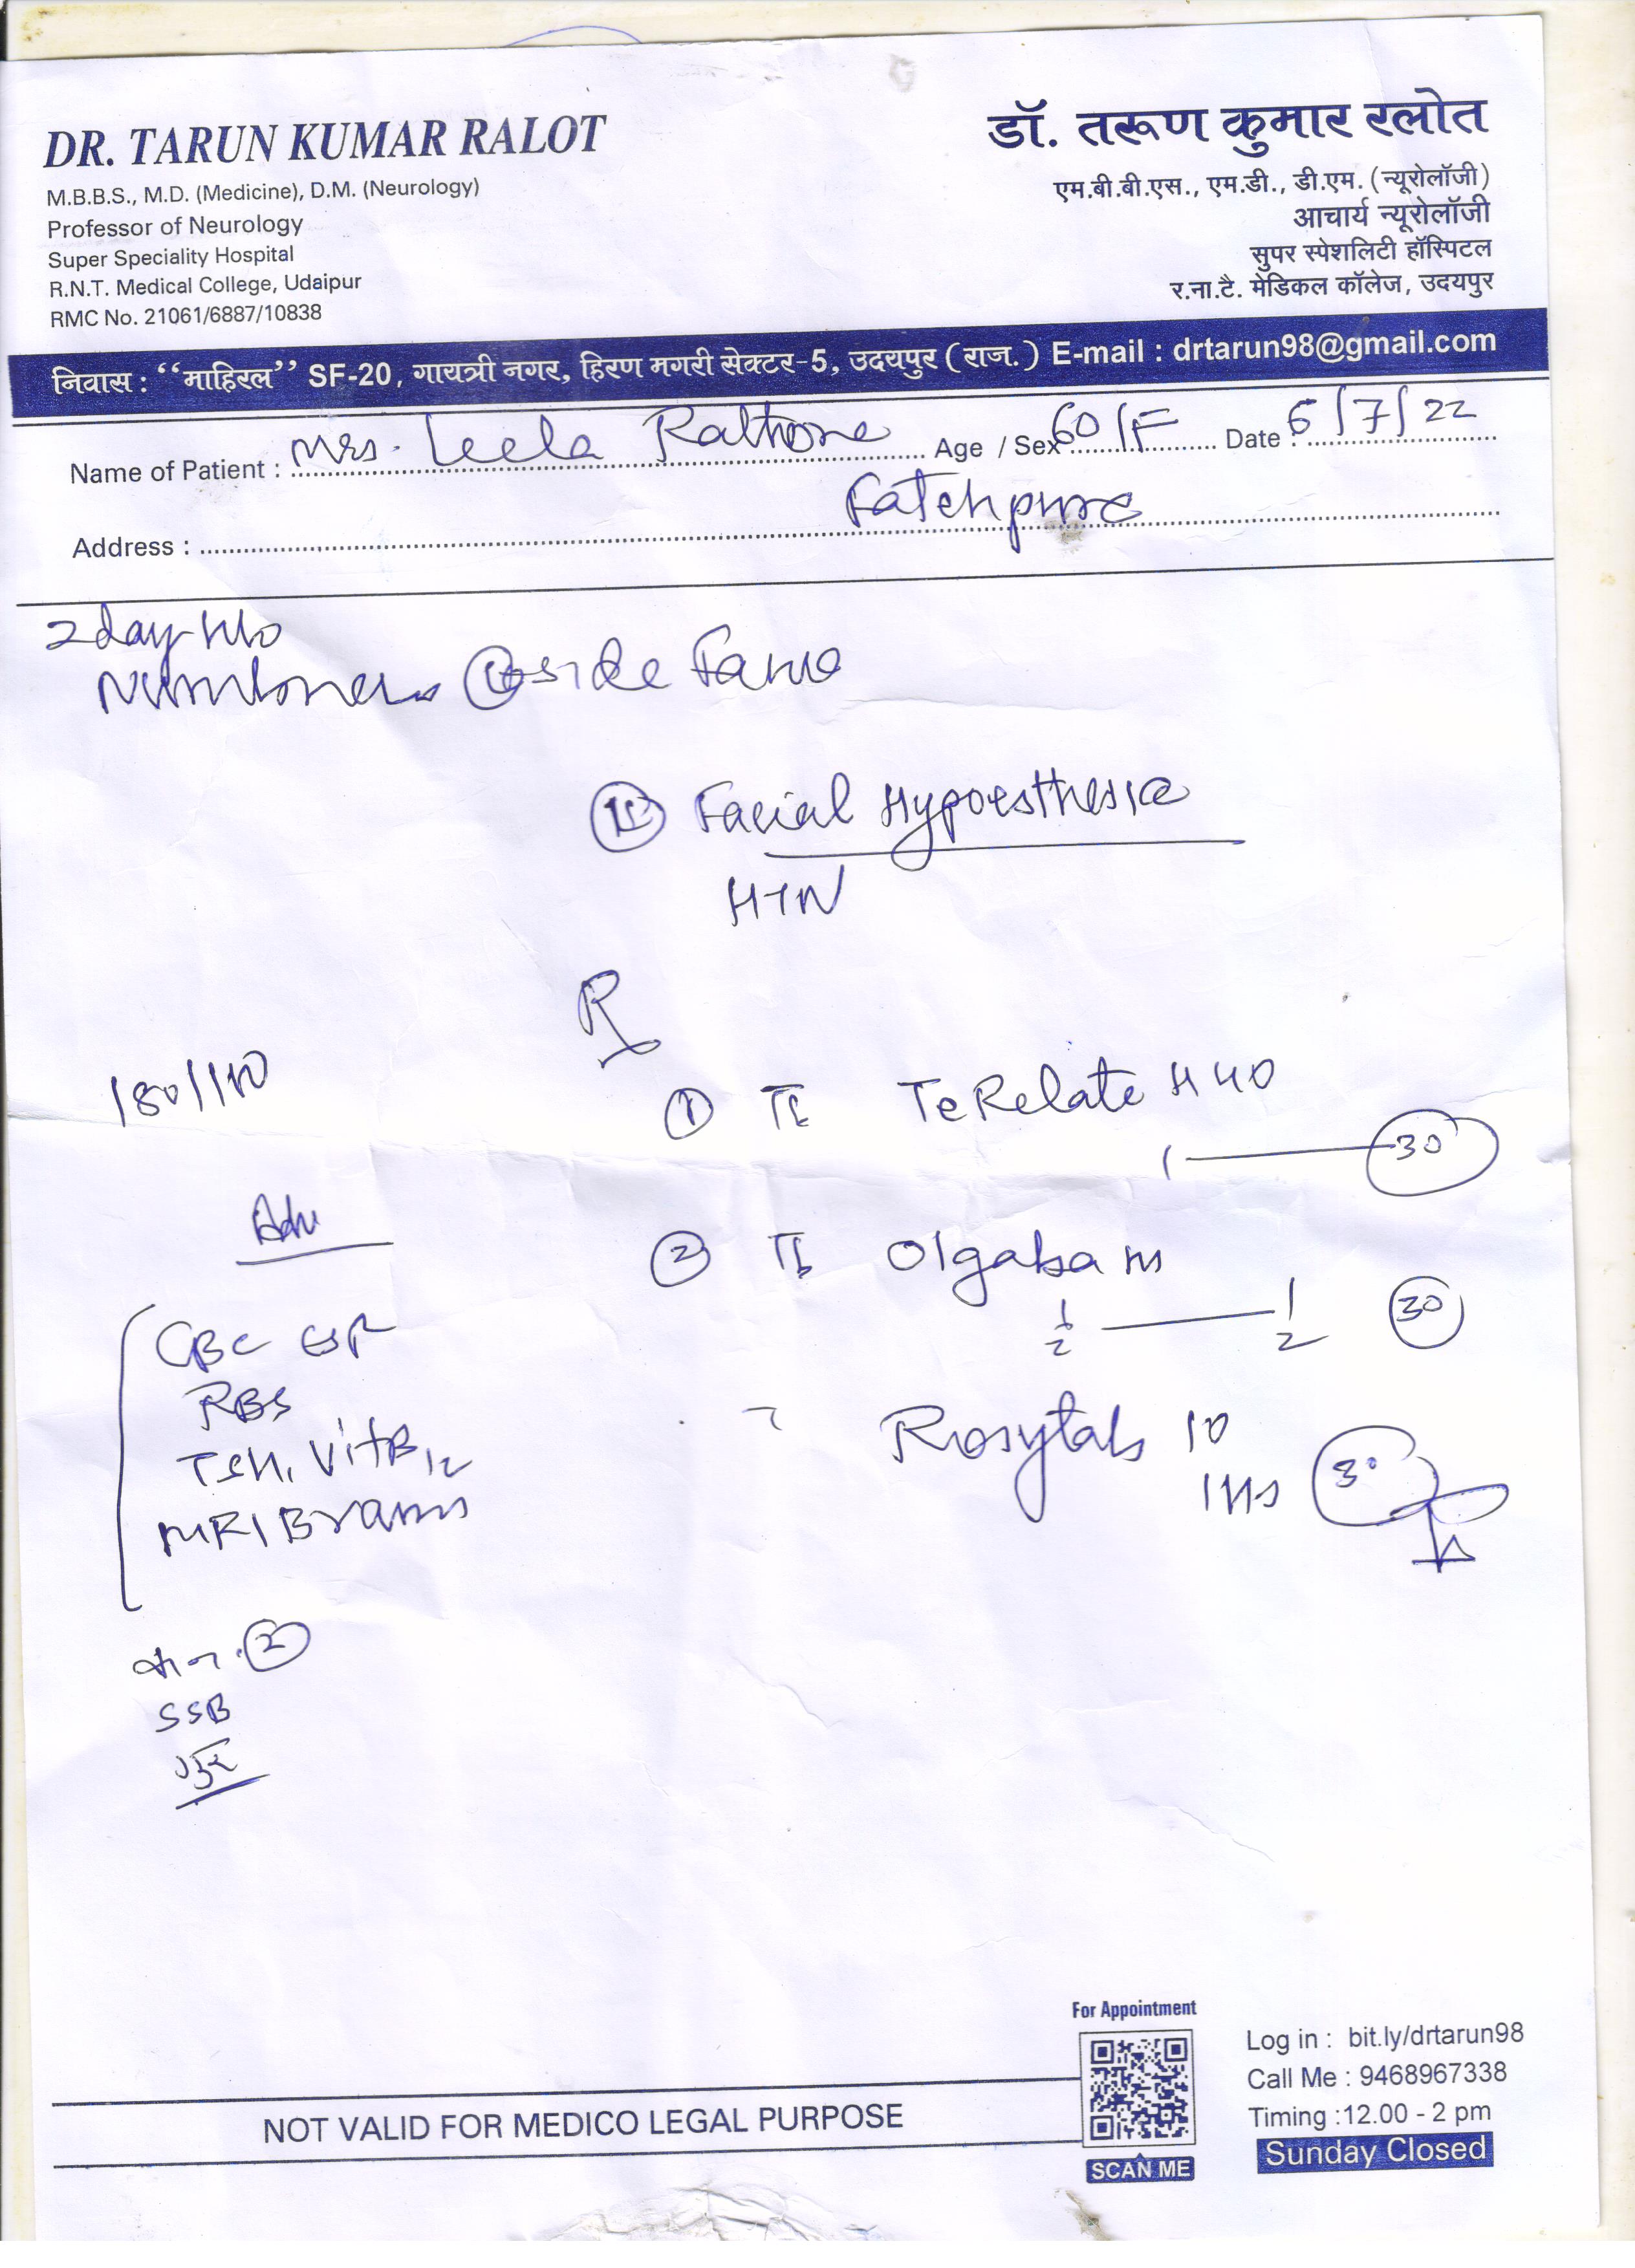 DR. TARUN KUMAR RALOT
M.B.B.S., M.D. (Medicine), D.M. (Neurology)
Professor of Neurology
Super Speciality Hospital
R.N.T. Medical College, Udaipur
RMC No. 21061/6887/10838
डॉ. तरूण कुमार रलोत
एम.बी.बी.एस., एम.डी., डी.एम. (न्यूरोलॉजी)
आचार्य न्यूरोलॉजी
सुपर स्पेशलिटी हॉस्पिटल
र.ना.टै. मेडिकल कॉलेज, उदयपुर
निवास : “माहिरल” SF-20, गायत्री नगर, हिरण मगरी सेक्टर-5, उदयपुर (राज.) E-mail : drtarun98@gmail.com
Name of Patient : Mrs. Leela Rathore Age / Sex 60/F Date : 6/7/22
Address : Fatehpura
2 day
Numbness side
Facial Hypoesthesia
HTN
R
180/110
① TeRelate H 40
1 30
Adv
② Olgaba M
1/2 1/2 30
CBC ESR
RBS
TSH, Vit B12
MRI Brain
Rosytals 10
1 HS 30
②
SSB
For Appointment
SCAN ME
Log in : bit.ly/drtarun98
Call Me : 9468967338
Timing :12.00 - 2 pm
Sunday Closed
NOT VALID FOR MEDICO LEGAL PURPOSE